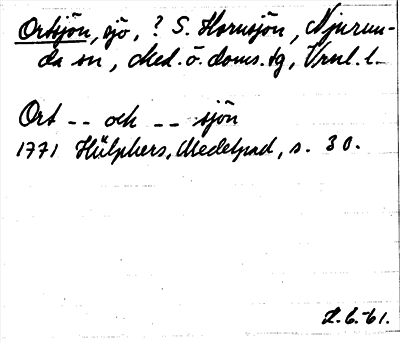 Ortsjön, sjö, ? S. Hornsjön, Njurun-
da sn, Med. ö. doms. tg, Vrnl. l.
Ort -- och -- sjön
1771 Hülphers, Medelpad, s. 30.
L. 6.-61.